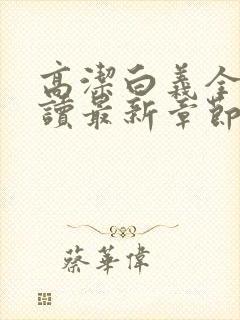 高潔白義全
讀最新章節
蔡華偉